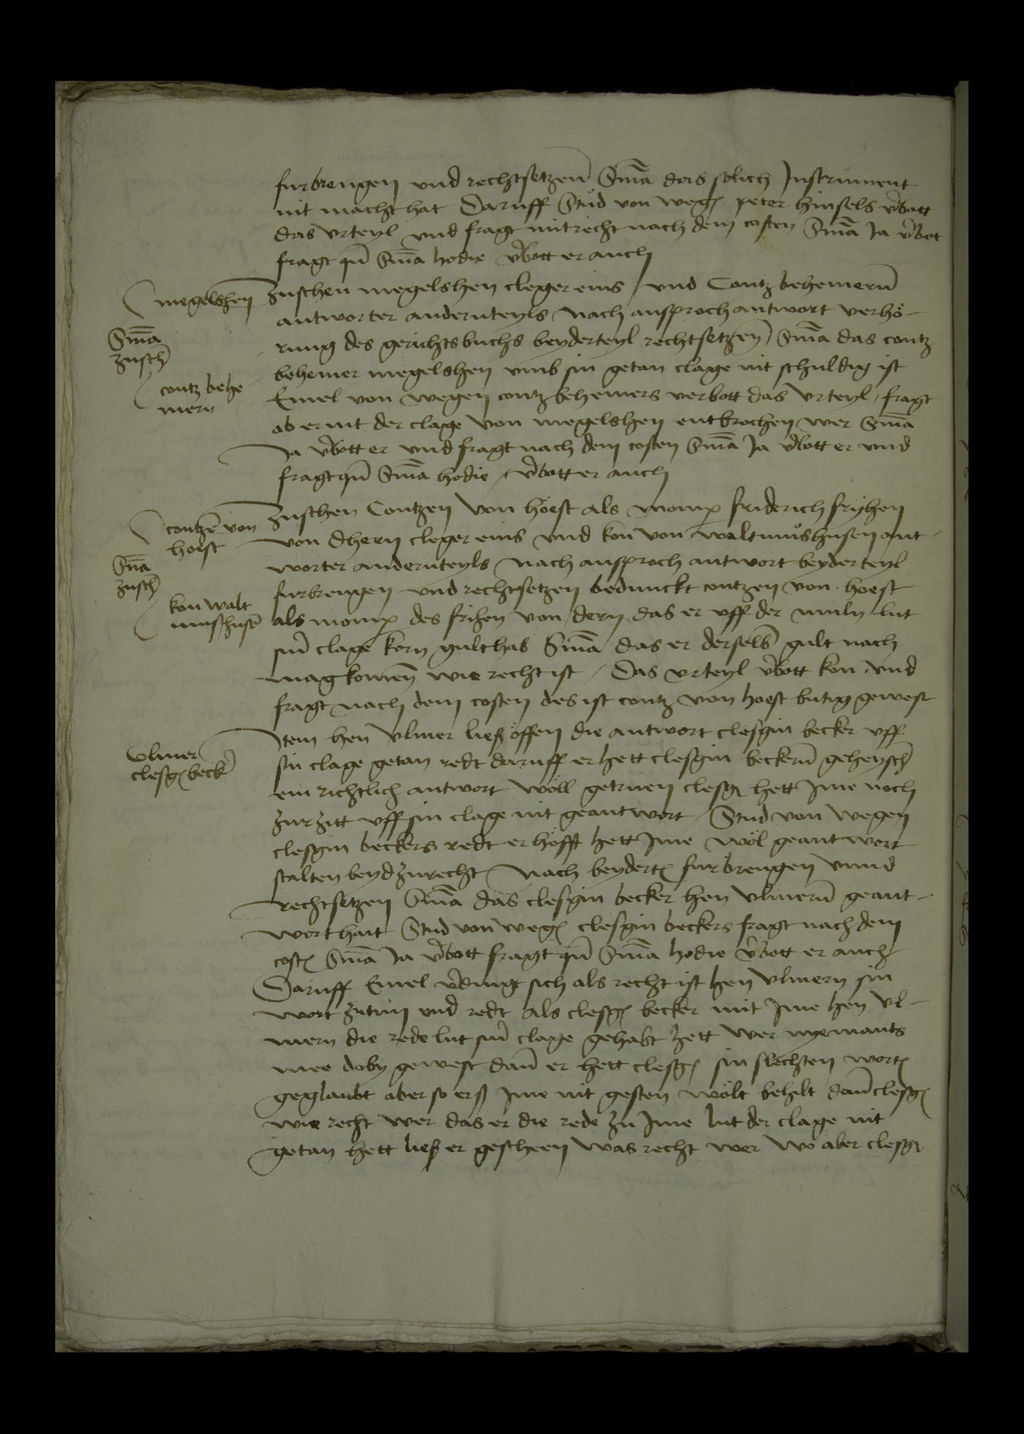 furbrengen und rechtsetzen Sma das solich Instrument
nit macht hat Daruff Stud von weg peter hinsels v̉bott
das urteyl und fragt mit recht nach dem costen Sma Ja v̉bot
fragt qn̄ Sma hodie v̉bott er auch
megelshen
Sma
zusch
contz behe
mern
Zuschen megelshen cleger eins und Contz behemern̄
antworter andernteyls nach ansproch antwort verhö-
rung des gerichtsbuchs beyderteyl rechtsetzen Sma das contz
behemer megelshen umb sin getan clage nit schuldig ist
Emel von wegen contz behemers verbott das urteyl fragt
ob er mit der clage von megelshen entbrochen wer Sma
Ja v̉bott er und fragt nach dem costen Sma Ja v̉bott er und
fragt qn̄ Sma hodie v̉bott er auch
contzē von
hoest
Sma
zusch
kon walt
mushusē
Zuschen Contzen von höest als momp friderich frÿhen
von Dhern cleger eins und kon von waltmůshusen ant
worter andernteyls nach ansproch antwort beyderteyl
furbrengen und rechtsetzen bedunckt contzen von hoest
als momp des frihen von dern das er uff der muln lut
sin̄ clage korn gulthab Sma das er derselb gult nach
mag komen̄ wie recht ist Das urteyl v̉bott kon und
fragt nach dem costen des ist contz von hoest butig gewest
Ulmer
clesg beck̉
Item hen Ulmer ließ öffen die antwort clesgin becker uff
sin clage getan redt daruff er hett clesgin beckern̄ geheysch
ein richtlich antwort woll getruen clesg hett Ime noch
zur Zitt uff sin clage nit geantwort Stud von wegen
clesgin beckers redt er hofft hett Ime wol geantwort
stalten beyd zu recht Nach beydert furbrengen unnd
rechtsetzen Sma das clesgin becker hen Ulmern̄ geant-
wort hait Stud von weg clesgin beckers fragt nach dem
cost Sma Ja v̉bott fragt qn̄ Sma hodie v̉bott er auch
Daruff Emel v̉dingt sich als recht ist hen Ulmern sin
wort zutun und redt als clesg becker mit Ime hen Ul-
mern die rede lut sin̄ clage gehabt hett wer nyemants
mee doby gewest dan̄ er hett clesg sin slechten wort
geglaubt aber so erß Ime nit gesten wolt behilt dan̄ clesg
wie recht wer das er die rede zu Ime lut der clage nit
getan hett ließ er gescheen was recht wer wo aber clesg